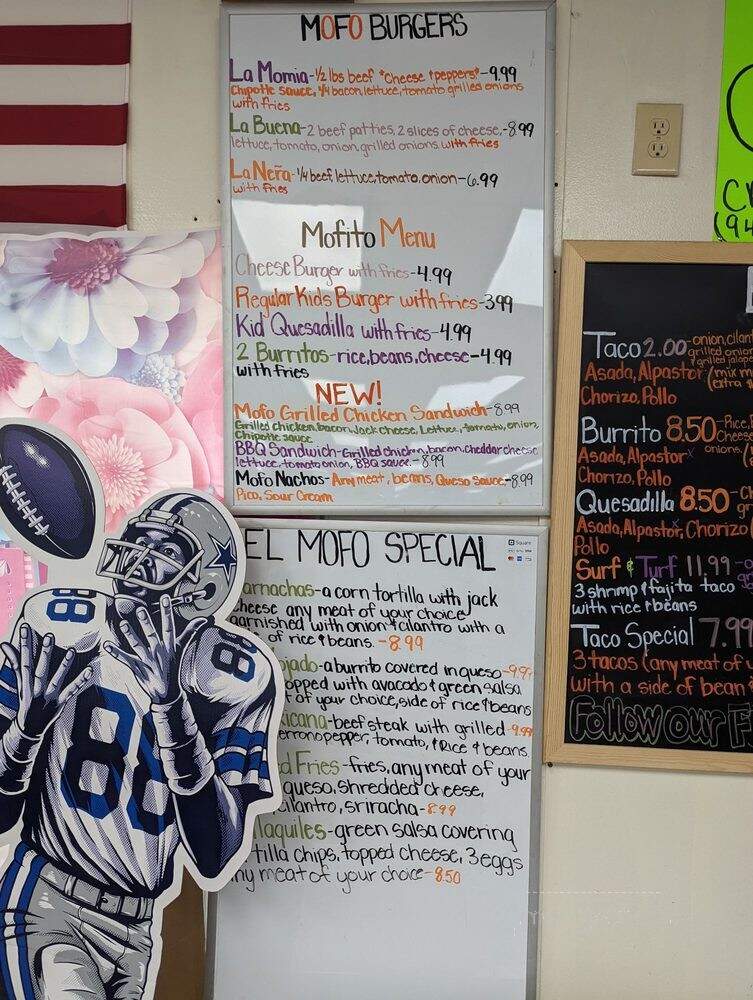 MOFO BURGERS
La Momia-½ lbs beef *cheese & peppers*-9.99
Chipotle sauce, ¼ bacon, lettuce, tomato grilled onions
with fries
La Buena-2 beef patties, 2 slices of cheese,-8.99
lettuce, tomato, onion, grilled onions with fries
La Neña-¼ beef, lettuce, tomato, onion-6.99
with fries
Mofito Menu
Cheese Burger with fries-4.99
Regular Kids Burger with fries-3.99
Kid Quesadilla with fries-4.99
2 Burritos-rice, beans, cheese-4.99
with fries
NEW!
Mofo Grilled Chicken Sandwich-8.99
Grilled chicken, bacon, Jack cheese, Lettuce, tomato, onion,
Chipotle sauce
BBQ Sandwich-Grilled chicken, bacon, Cheddar cheese
lettuce, tomato onion, BBQ sauce.-8.99
Mofo Nachos-Any meat, beans, Queso sauce-8.99
Pico, Sour Cream
EL MOFO SPECIAL
Square
arnachas-a corn tortilla with jack
cheese any meat of your choice
garnished with onion & cilantro with a
of rice & beans.-8.99
ojado-a burrito covered in queso-9.99
opped with avacado & green salsa
of your choice, side of rice & beans
xicana-beef steak with grilled-9.99
errono pepper, tomato, & Rice & beans
d Fries-fries, any meat of your
queso, shredded cheese,
ilantro, sriracha-8.99
laquiles-green salsa covering
tilla chips, topped cheese, 3 eggs
ny meat of your choice-8.50
Taco 2.00-onion, cilan
grilled onion
grilled jalape
Asada, Alpastor (mix m
extra
Chorizo, Pollo
Burrito 8.50-Rice,
Cheese
onions.
Asada, Alpastor
Chorizo, Pollo
Quesadilla 8.50-Ch
Asada, Alpastor, Chorizo (
Pollo
Surf & Turf 11.99
3 shrmp & fajita taco
with rice & beans
Taco Special 7.99
3 tacos (any meat of
with a side of bean
Follow our F
C
(94
88
88
88